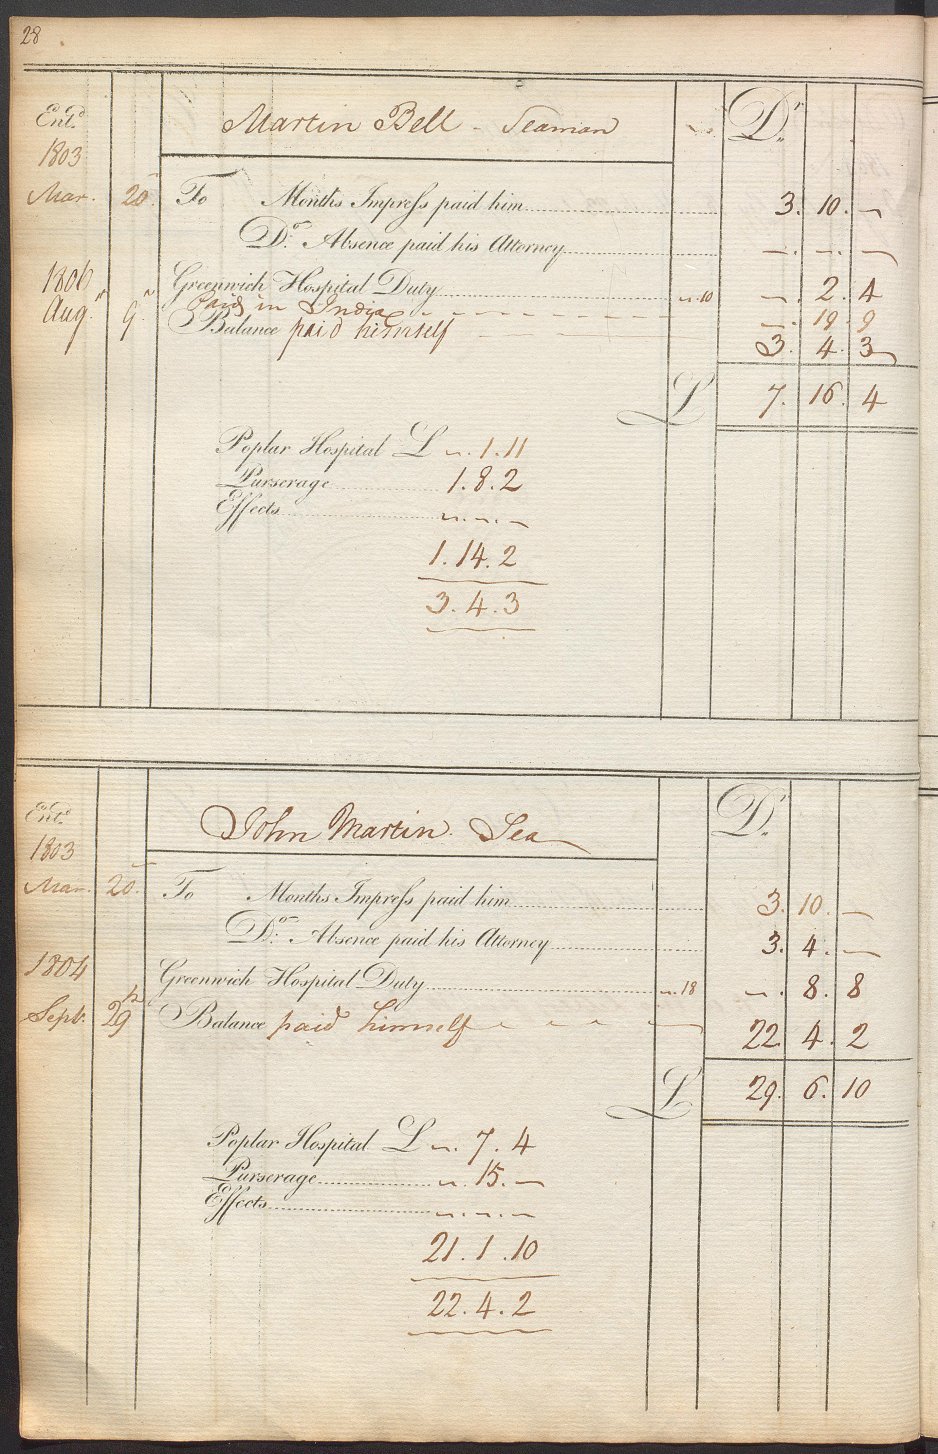 28
Entd. Martin Bell - Seaman Dr.
1803
Mar. 20 To Months Impress paid him 3. 10. —
Do. Absence paid his Attorney —. —. —
1806 Greenwich Hospital Duty ". 10 —. 2. 4
Paid in India —. 19. 9
Aug. 9 Balance paid himself 3. 4. 3
£ 7. 16. 4
Poplar Hospital £ ". 1. 11
Purserage 1. 8. 2
Effects ". ". —
1. 14. 2
3. 4. 3
Entd. John Martin. Sea Dr.
1803
Mar. 20. To Months Impress paid him 3. 10. —
Do. Absence paid his Attorney 3. 4. —
1804 Greenwich Hospital Duty ". 18 ". 8. 8
Sept. 29 Balance paid himself 22. 4. 2
£ 29. 6. 10
Poplar Hospital £ ". 7. 4
Purserage ". 15. —
Effects ". ". —
21. 1. 10
22. 4. 2